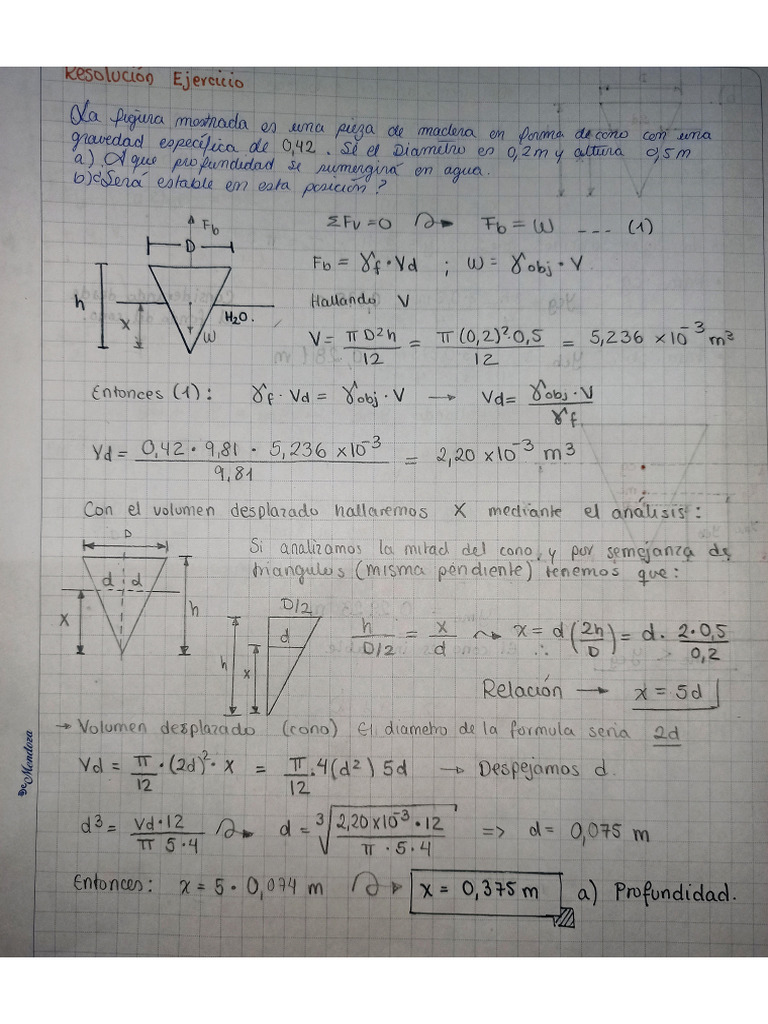 Resolución Ejercicio
La figura mostrada es una pieza de madera en forma de cono con una
gravedad específica de 0,42. Si el Diametro es 0,2m y altura 0,5m
a). A que profundidad se sumergirá en agua.
b) ¿Será estable en esta posición?
ΣFv=0 Fb = W --- (1)
Fb
D
Fb = γf · Vd ; W = γobj · V
h
x
H2O.
W
Hallando V
V = π D²h / 12 = π (0,2)²·0,5 / 12 = 5,236 × 10⁻³ m³
Entonces (1): γf · Vd = γobj · V → Vd = γobj · V / γf
Vd = 0,42 · 9,81 · 5,236 × 10⁻³ / 9,81 = 2,20 × 10⁻³ m³
Con el volumen desplazado hallaremos X mediante el análisis:
D
d d
x
h
Si analizamos la mitad del cono, y por semejanza de
triangulos (misma pendiente) tenemos que:
D/2
d
h
x
h / D/2 = x / d ∴ x = d (2h / D) = d · 2·0,5 / 0,2
Relación → x = 5d
→ Volumen desplazado (cono) El diametro de la formula seria 2d
Vd = π/12 · (2d)² · x = π/12 · 4(d²) 5d → Despejamos d.
d³ = Vd·12 / π 5·4 d = ³√(2,20×10⁻³·12 / π · 5 · 4) => d = 0,075 m
Entonces: x = 5 · 0,074 m x = 0,375 m a) Profundidad.
De Mendoza